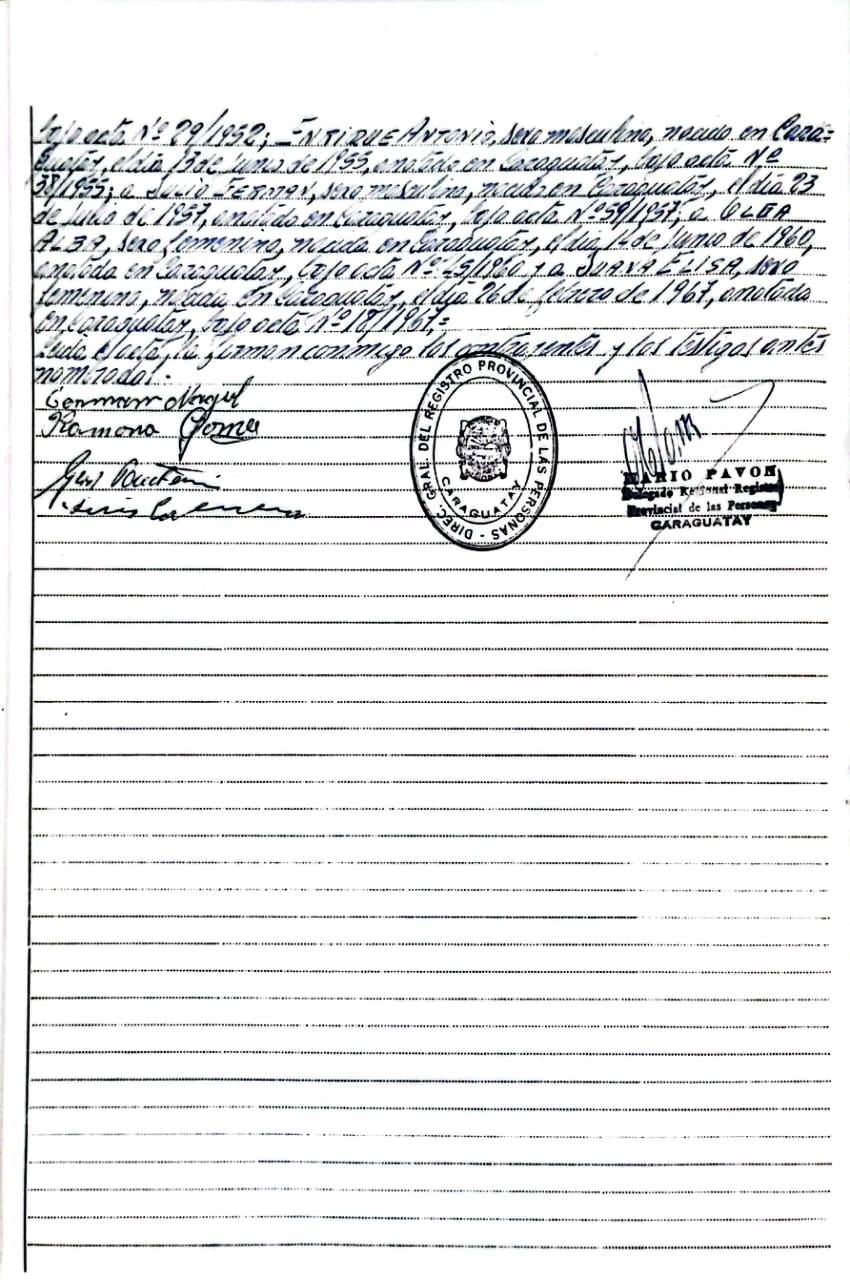 bajo acta Nº 29/1952; ENRIQUE ANTONIO, sexo masculino, nacido en Cara=
guatay, el día 13 de junio de 1955, anotado en Caraguatay, bajo acta Nº
38/1955; a JULIO GERMAN, sexo masculino, nacido en Caraguatay, el día 23
de junio de 1957, anotado en Caraguatay, bajo acta Nº 59/1957; a OLGA
ALBA, sexo femenino, nacida en Caraguatay, el día 14 de junio de 1960,
anotada en Caraguatay, bajo acta Nº 45/1960 y a JUANA ELISA, sexo
femenino, nacida en Caraguatay, el día 26 de febrero de 1967, anotada
en Caraguatay, bajo acta nº 18/1967.=
Leída el acta, la firman conmigo los contrayentes y los testigos antes
nombrados.
German
Ramona Gomez
DIREC. GRAL. DEL REGISTRO PROVINCIAL DE LAS PERSONAS -
CARAGUATAY
MARIO PAVON
Delegado Regional Registro
Provincial de las Personas
CARAGUATAY